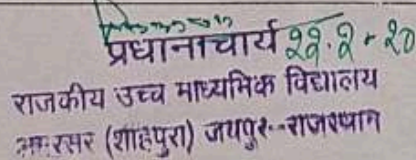 प्रधानाचार्य 22.2.20
राजकीय उच्च माध्यमिक विद्यालय
अमरसर (शाहपुरा) जयपुर-राजस्थान